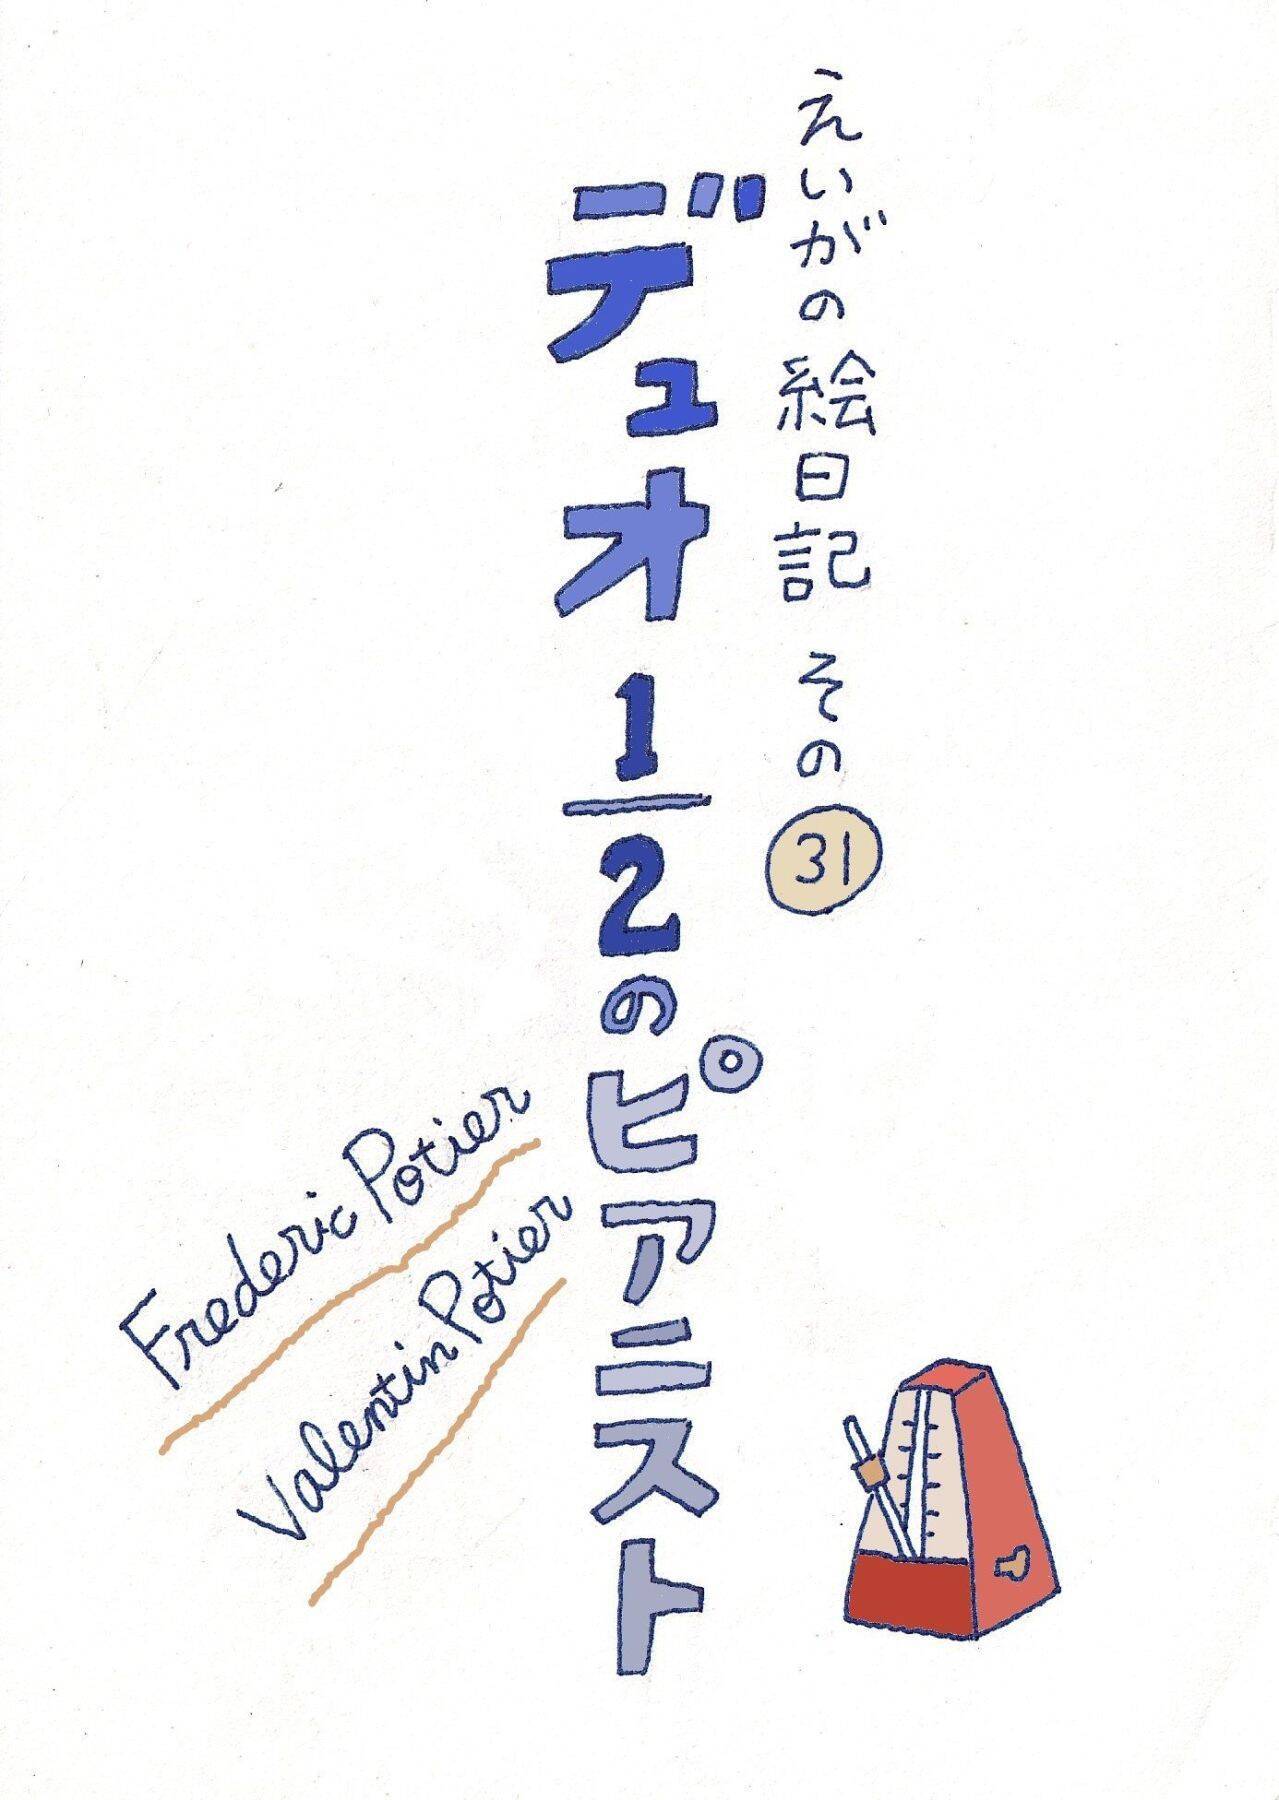 えいがの絵日記 その31
デュオ 1/2のピアニスト
Frederic Potier
Valentin Potier